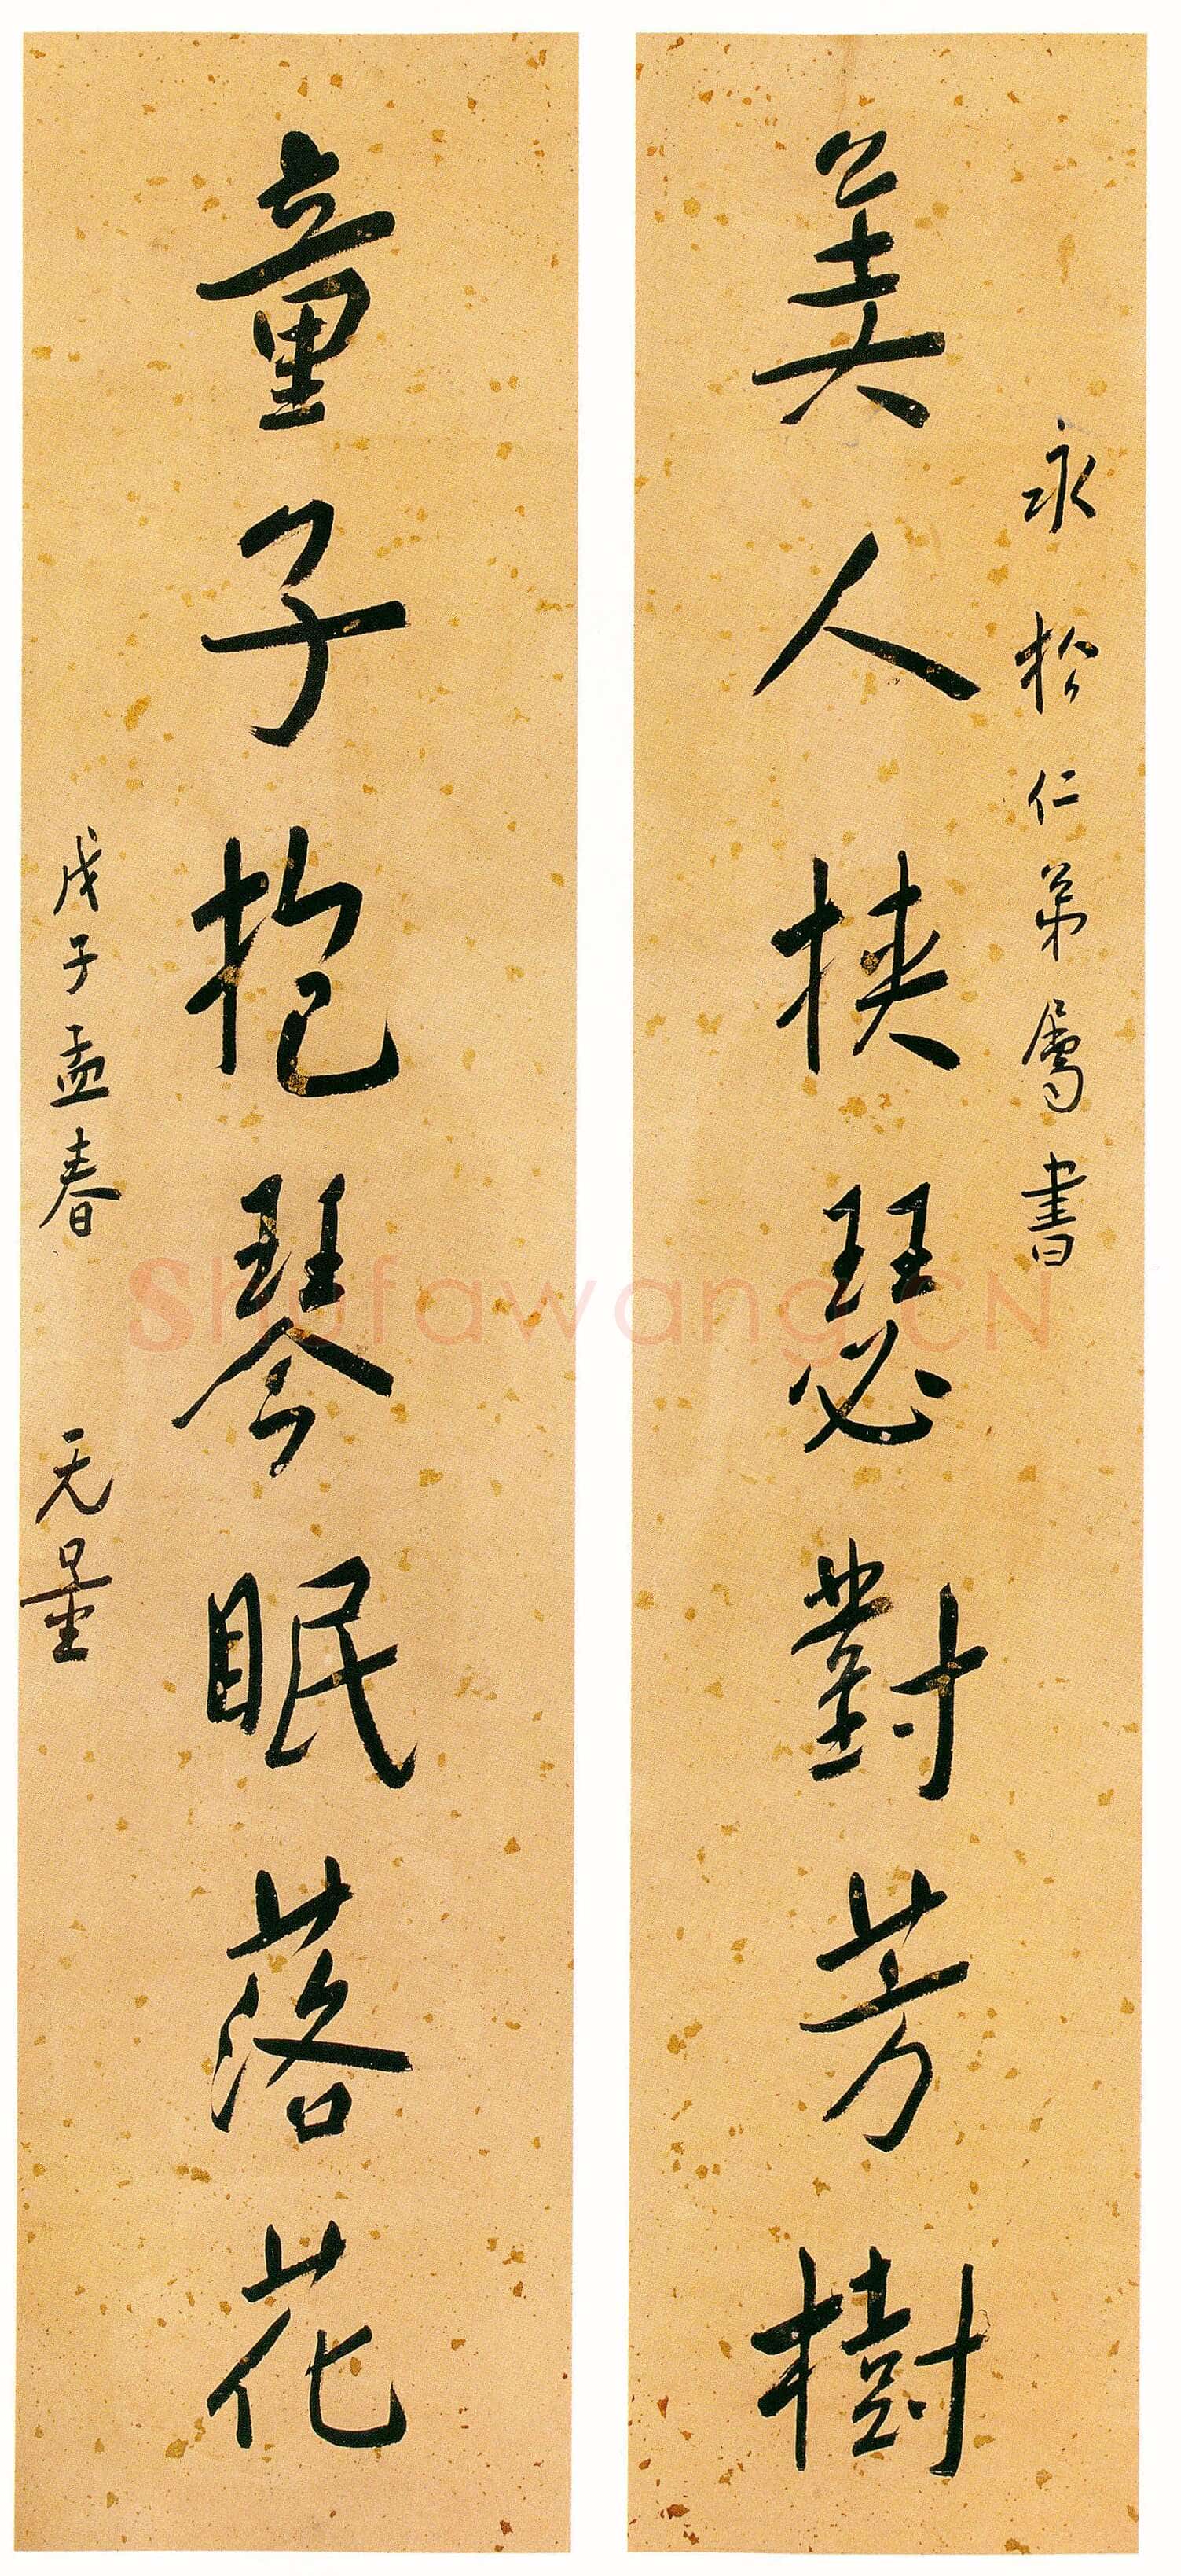 永松仁弟屬書
美人挾瑟對芳樹
童子抱琴眠落花
戊子孟春 无量
Shufawang.CN